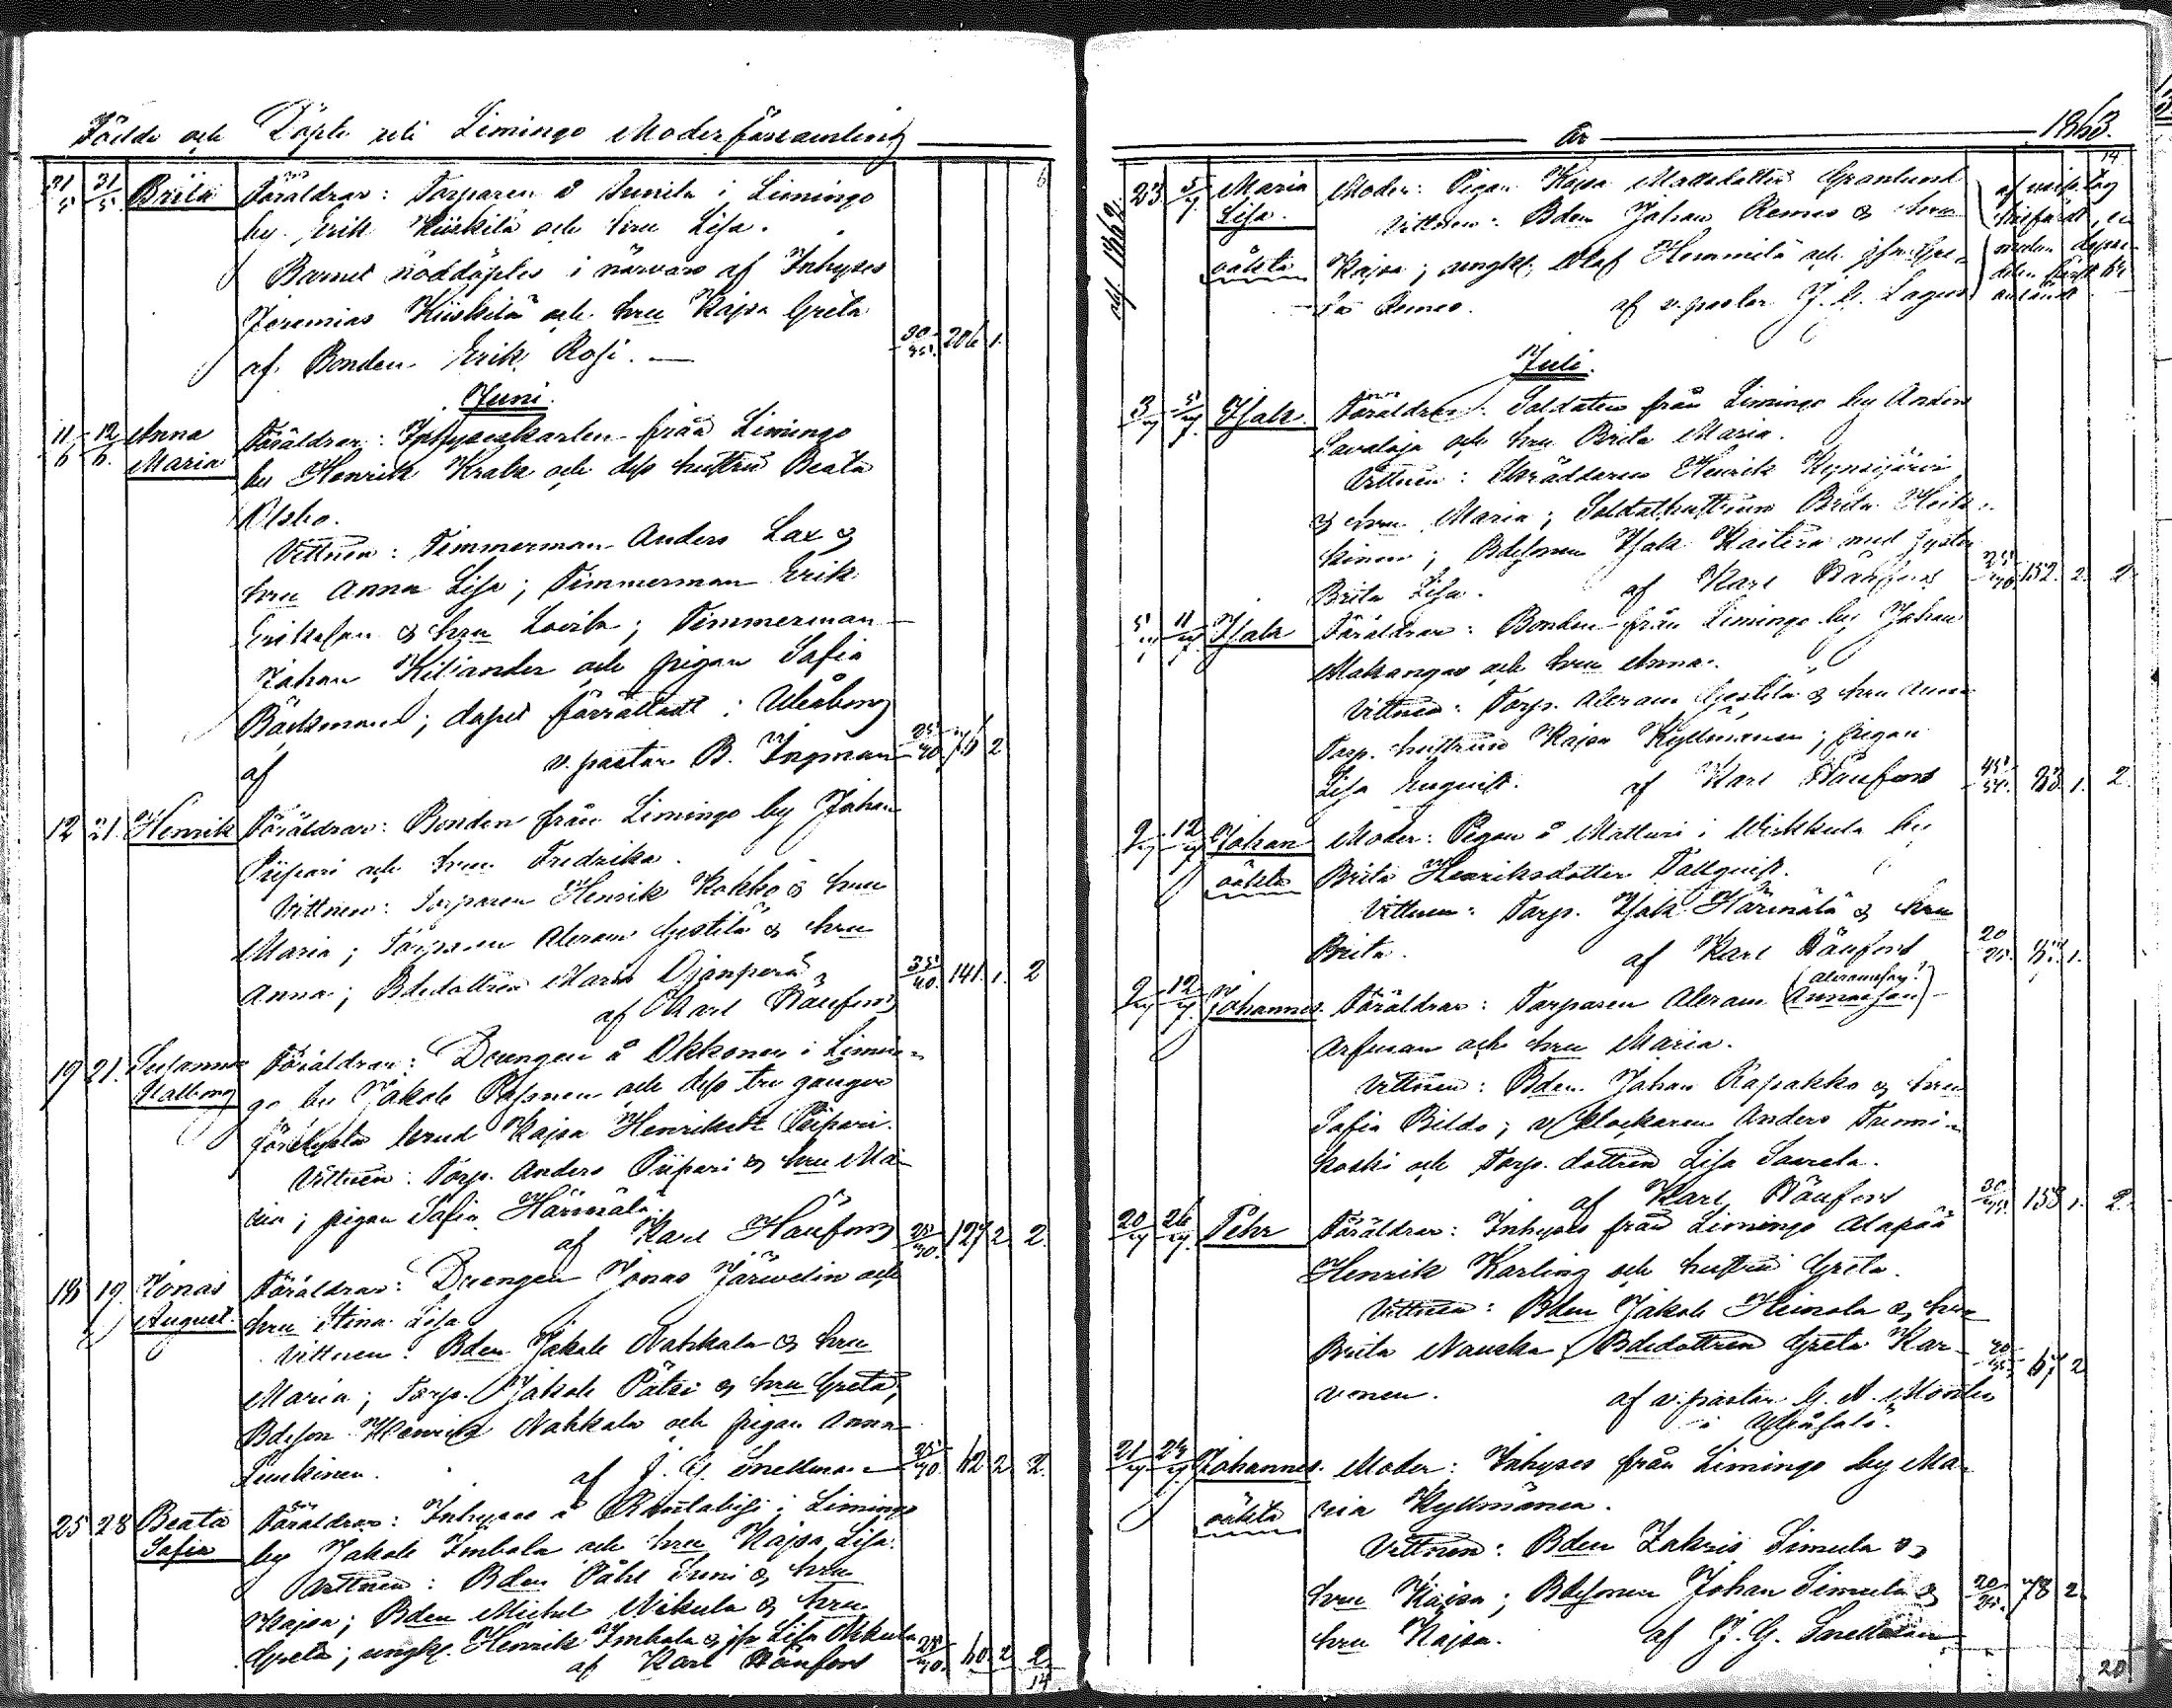 Födde och Döpte uti Limingo Moderförsamling
6
31/5 31/5 Brita Föräldrar: Torparen å Junila i Limingo
by Erik Kiiskilä och hru Lisa.
Barnet nöddöptes i närvaro af Inhyses
Jeremias Kiiskilä och hru Kajsa Greta
af Bonden Erik Rosi. 30/35. 206 1.
Juni.
11/6 12/6. Anna Föräldrar: Inhyseskarlen från Limingo
Maria by Henrik Krank och dess hustru Beata
Vittnen: Timmerman Anders Lax &
hru Anna Lisa; Timmerman Erik
Eriksson & hru Lovisa; Timmerman
Johan Kiljander och pigan Sofia
Bäckman; dopet förrättadt i Uleåborg
af v. pastor B. Ingman 25/30 76 2
12 21. Henrik Föräldrar: Bonden från Limingo by Johan
Piipari och hru Fredrika.
Vittnen: Torparen Henrik Kokko & hru
Maria; Torparen Abram Gestilä & hru
Anna; Bdedottren Maria Ojanperä
af Karl Stäufert 35/40. 141. 1. 2
17 21. Susanna Föräldrar: Drengen å Okkonen i Limin-
Walborg go by Jakob Passinen och dess tre gånger
förelysta brud Kajsa Henriksdr Piipari.
Vittnen: Torp. Anders Piipari & hru Ma-
ria; pigan Sofia Härmälä.
af Karl Stäufert 25/30. 127 2 2.
18 19. Jonas Föräldrar: Drengen Jonas Järwelin och
August. hru Stina Lisa
Vittnen: Bden Jakob Nahkala & hru
Maria; Torp. Jakob Pätsi & hru Greta;
Bdeson Henrik Nahkala och pigan Anna
Luukinen. af J. G. Snellman 25/30. 62 2 2.
25 28 Beata Föräldrar: Inhyses å Rantabisi i Limingo
Sofia by Jakob Imbola och hru Kajsa Lisa.
Vittnen: Bden Påhl Suni & hru
Kajsa; Bden Michel Nikula & hru
Greta; ungk. Henrik Imbola & jfr Lisa Nikula
af Karl Stäufert 25/30. 60 2 2
14
År 1863.
14
adj 1862.
23. 5/7. Maria Moder: Pigan Kajsa Matsdotter Granlund
Lisa. Vittnen: Bden Johan Remes & hru
oäkta Kajsa; ungk. Olof Hemmilä och jfr Gre-
ta Remes. af v. pastor J. L. Lagus
Juli.
3/7 5/7. Isak. Föräldrar: Soldaten från Limingo by Anders
Savaloja och hru Brita Maria.
Vittnen: Skräddaren Henrik Kynsijärvi
& hru Maria; Soldathustrun Brita Heik-
kinen; Bdesonen Isak Kaitera med syster
Brita Lisa. af Karl Stäufert 25/30. 152. 2. 2.
5/7 11/7 Isak Föräldrar: Bonden från Limingo by Johan
Makangas och hru Anna.
Vittnen: Torp. Abram Gestilä & hru Anna
Torp. hustrun Kajsa Kyllmänen; pigan
Lisa Enqvist. af Karl Stäufert 45/50. 33. 1. 2.
9/7 12/7 Johan Moder: Pigan å Matturi i Wirkkula by
oäkta Brita Henriksdotter Tallqvist.
Vittnen: Torp. Isak Härmälä & hru
Brita. af Karl Stäufert 20/25. 1.
9/7 12/7. Johannes. Föräldrar: Torparen Abram (Annasson) Abramsson?
Arfman och hru Maria.
Vittnen: Bden Johan Rapakko & hru
Sofia Bildo; v. klockaren Anders Tremi-
koski och Torp. dottren Lisa Saarela.
af Karl Stäufert 30/35. 158 1. 2.
20/7 26/7. Pehr Föräldrar: Inhyses från Limingo Alapää
Henrik Karling och hustru Greta.
Vittnen: Bden Jakob Heinola & hru
Brita Nauska, Bdedottren Greta Kar-
vonen. af v. pastor G. A. Montin 67 2
i Uleåsalo.
21/7 24/7. Johannes. Moder: Inhyses från Limingo by Ma-
oäkta ria Kyllmänen.
Vittnen: Bden Zakris Simula &
hru Kajsa; Bdesonen Johan Simula &
hru Kajsa. af J. G. Snellman 20/25. 78 2
20